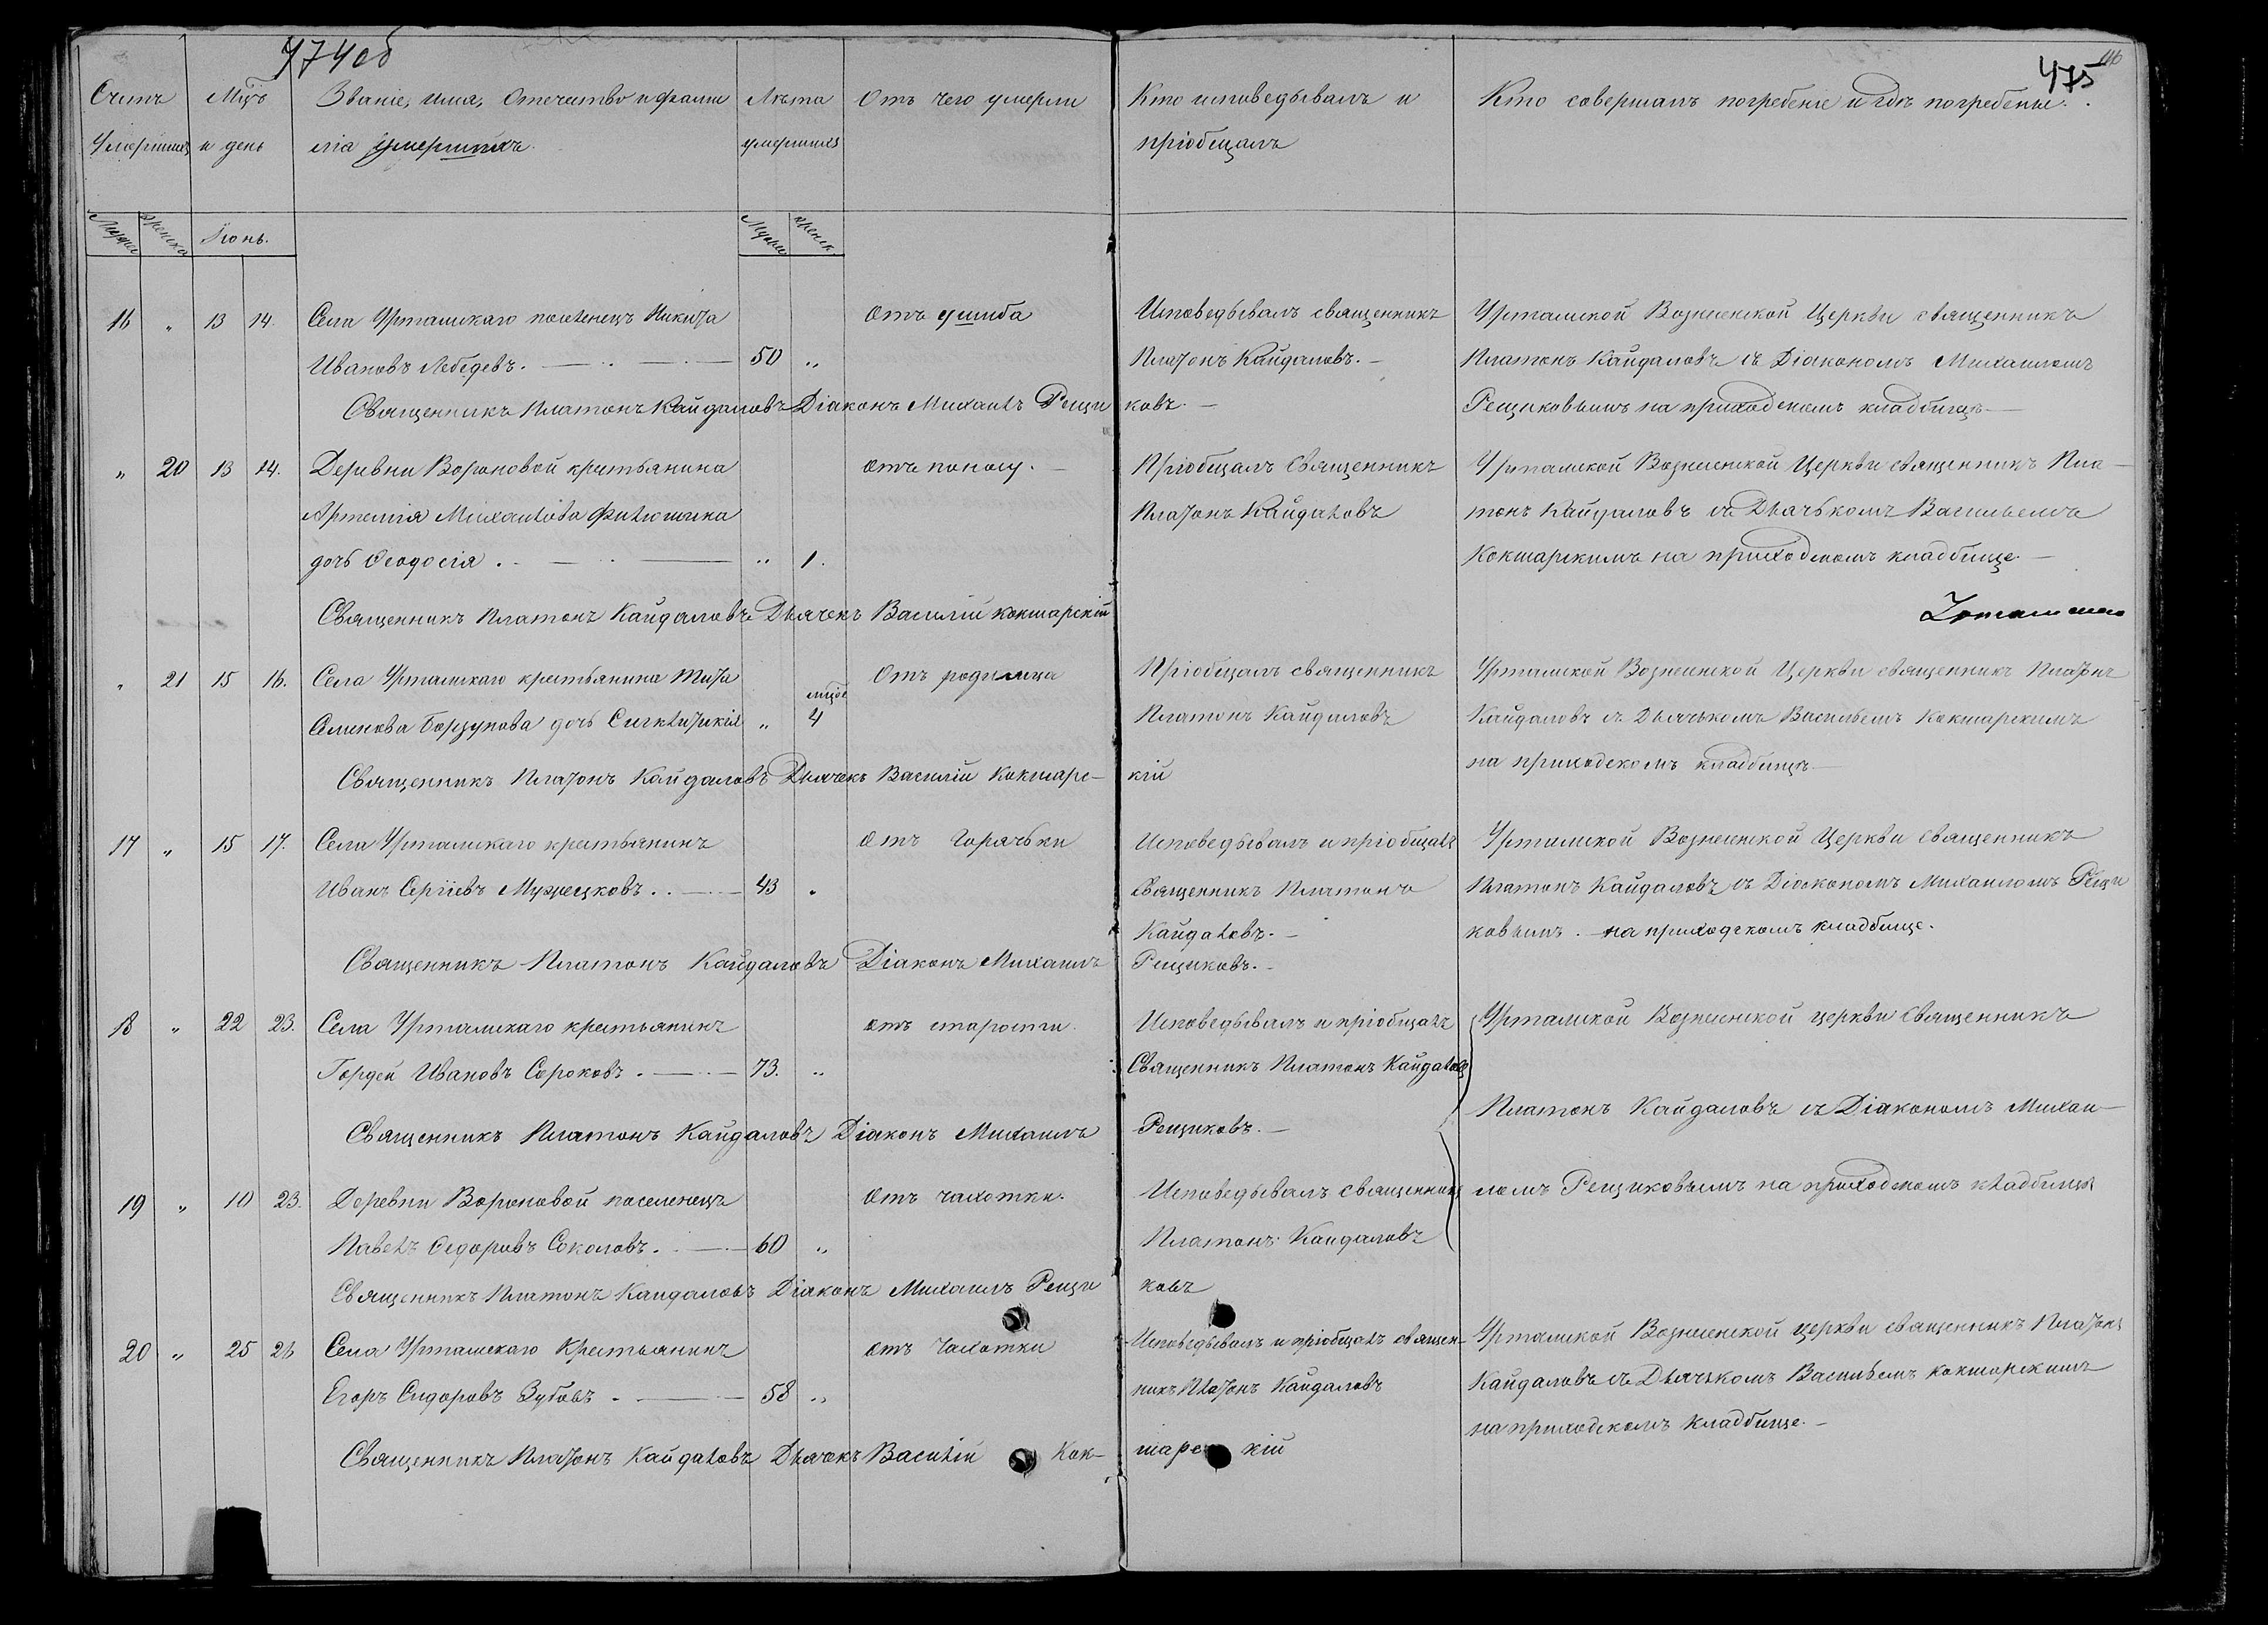 474об
475
Счетъ
умершихъ
Мцъ
и день
Званіе, имя, Отечество и фами
лія умершихъ.
Лѣта
умершихъ
Отъ чего умерли
Кто исповедывалъ и
пріобщалъ
Кто совершалъ погребеніе и гдѣ погребены.
Іюнь.
16 „ 13 14. Села Уртамскаго поселенецъ Никита
Ивановъ Лебедевъ. 50 „
Отъ ушиба
Исповедывалъ священникъ
Платонъ Кайдаловъ.
Уртамской Вознесенской Церкви священникъ
Платонъ Кайдаловъ съ Діакономъ Михаиломъ
Рещиковымъ на приходскомъ кладбищѣ
Священникъ Платонъ Кайдаловъ Діаконъ Михаилъ Рещи
ковъ.
„ 20 13 14. Деревни Вороновой крестьянина
Артемія Михаилова Филюшина
дочь Ѳеодосія. „ 1.
отъ поносу.
Пріобщалъ Священникъ
Платонъ Кайдаловъ
Уртамской Вознесенской Церкви священникъ Пла-
тонъ Кайдаловъ съ Дьячькомъ Васильемъ
Кокшарскимъ на приходскомъ кладбище
Священникъ Платонъ Кайдаловъ Дьячекъ Василій Кокшарскій
„ 21 15 16. Села Уртамскаго крестьянина Тита
Борзунова дочь Сигклитикія „ 4
Отъ родимца
Пріобщалъ священникъ
Платонъ Кайдаловъ
Уртамской Вознесенской Церкви священникъ Платонъ
Кайдаловъ съ Дьячькомъ Васильемъ Кокшарскимъ
на приходскомъ кладбищѣ
Священникъ Платонъ Кайдаловъ Дьячекъ Василій Кокшарс-
кій
17 „ 15 17. Села Уртамскаго крестьянинъ
Иванъ Сергіевъ 43 „
Отъ Горячьки
Исповедывалъ и пріобщалъ
Священникъ Платонъ
Кайдаловъ.
Уртамской Вознесенской Церкви священникъ
Платонъ Кайдаловъ съ Діакономъ Михаиломъ Рещи
ковымъ. на приходскомъ кладбище.
Священникъ Платонъ Кайдаловъ Діаконъ Михаилъ
Рещиковъ.
18 „ 22 23. Села Уртамскаго крестьянинъ
Гордей Ивановъ Сороковъ. 73. „
отъ старости
Исповедывалъ и пріобщалъ
Священникъ Платонъ Кайдаловъ
Уртамской Вознесенской церкви Священникъ
Платонъ Кайдаловъ съ Діакономъ Михаи-
Священникъ Платонъ Кайдаловъ Діаконъ Михаилъ
Рещиковъ.
19 „ 10 23. Деревни Вороновой поселенецъ
Павелъ Ѳедоровъ Соколовъ. 60 „
Отъ чахотки.
Исповедывалъ священникъ
Платонъ Кайдаловъ
ломъ Рещиковымъ на приходскомъ кладбищѣ
Священникъ Платонъ Кайдаловъ Діаконъ Михаилъ Рещи
ковъ
20 „ 25 26 Села Уртамскаго Крестьянинъ
Егоръ Сидоровъ Зубовъ. 58 „
отъ Чахотки
Исповедывалъ и пріобщалъ священ-
никъ Платонъ Кайдаловъ
Уртамской Вознесенской церкви священникъ Платонъ
Кайдаловъ съ Дьячькомъ Васильемъ Кокшарскимъ
на приходскомъ кладбище.
Священникъ Платонъ Кайдаловъ Дьячекъ Василій Кок-
шарскій